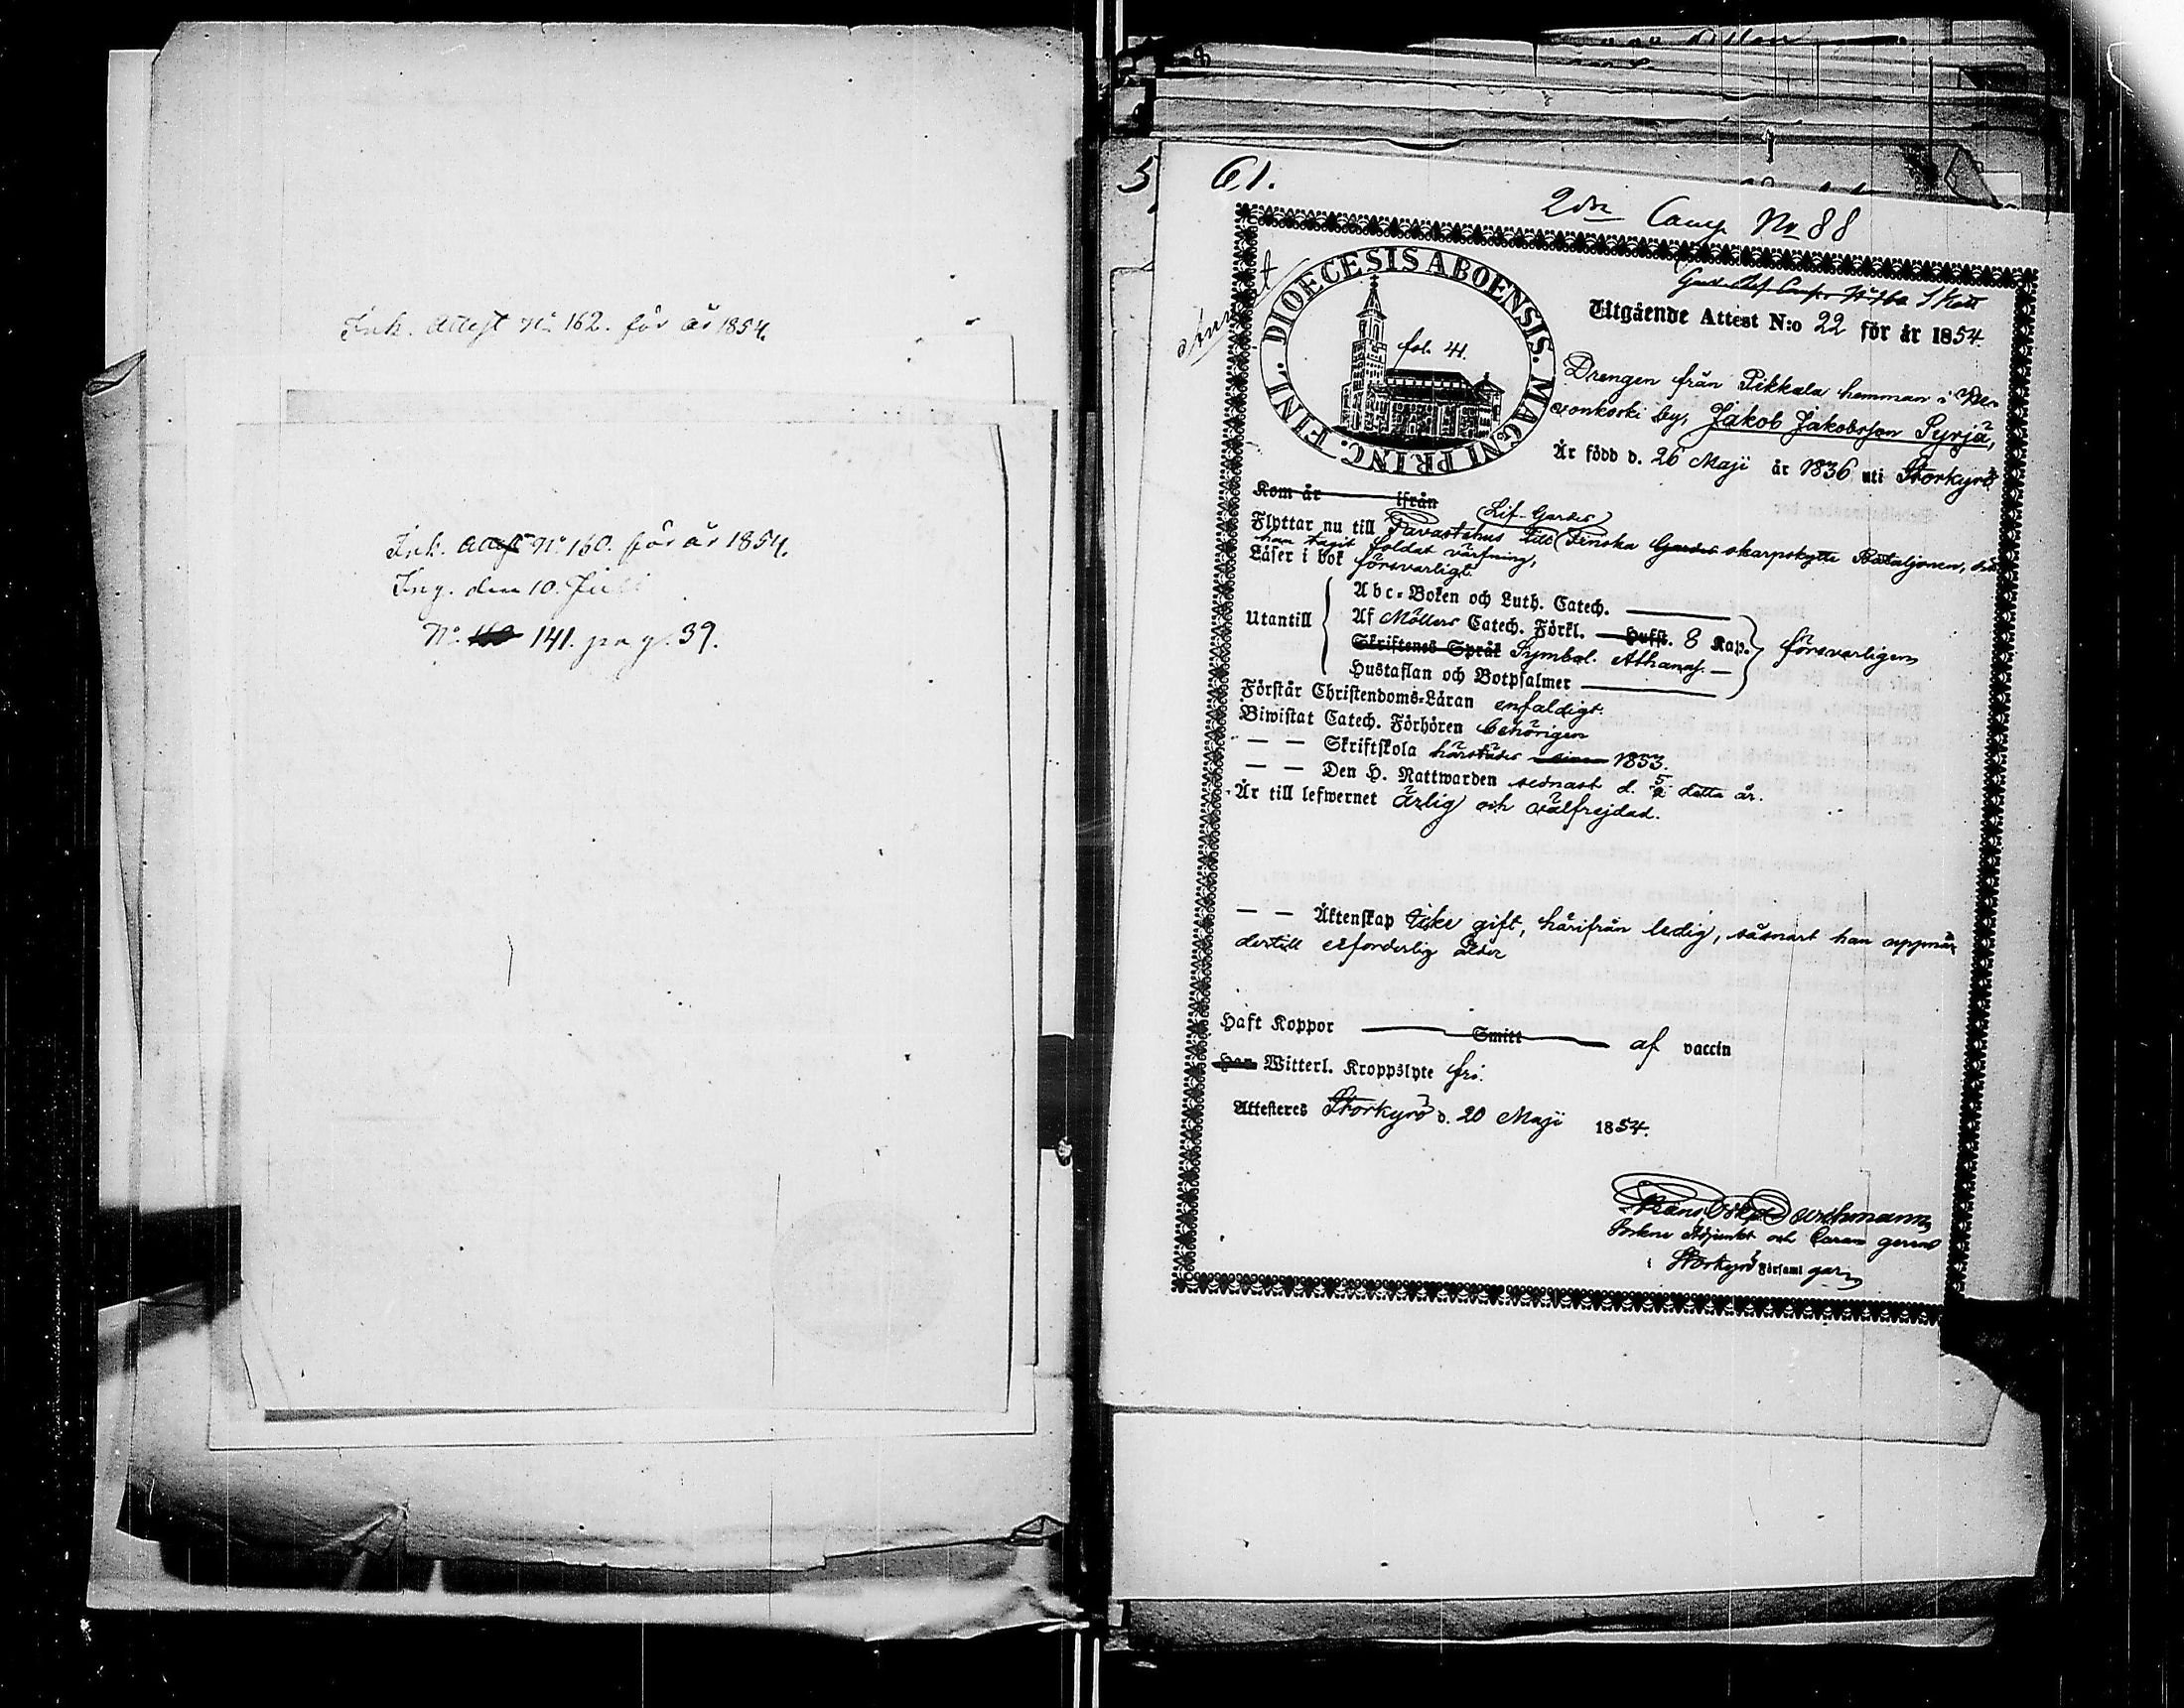 Ink. Attest No 162. för år 1854.
Ink. Attest No 160. för år 1854.
Ing. den 10. Juli
No 141. pag. 39.
5
61.
2dra Comp No 88
DIOECESIS ABOENSIS. MAGNI PRINC. FINL.
fol. 41.
Utgående Attest N:o 22 för år 1854.
Drengen från Pikkala hemman i
konkoski by, Jakob Jakobsson Pyrjä,
Är född d. 26 Maji år 1836 uti Storkyrö.
Kom år ifrån
Lif-Gardes
Flyttar nu till Tavastehus till Finska Gardes skarpskytte Bataljonen, der
han tagit soldat värfning,
Läser i bok försvarligt.
Abc-Boken och Luth. Catech.
Utantill
Af Möllers Catech. Förkl. Hufst. 8 Kap.
försvarligen
Skriftenes Språk Symbol. Athanas.
Hustaflan och Botpsalmer
Förstår Christendoms-Läran enfaldigt.
Biwistat Catech. Förhören behörigen
— — Skriftskola härstädes 1853.
— — Den H. Nattwarden sednast d. detta år.
Är till lefwernet ärlig och välfrejdad.
— — Äktenskap Icke gift, härifrån ledig, såsnart han uppnår
dertill erforderlig ålder
Haft Koppor Smitt af vaccin
Har Witterl. Kroppslyte fri.
Attesteres Storkyrö d. 20 Maji 1854.
Frans Oskar Durchmann
Sockne Adjunkt och Curam gerens
i Storkyrö Församl